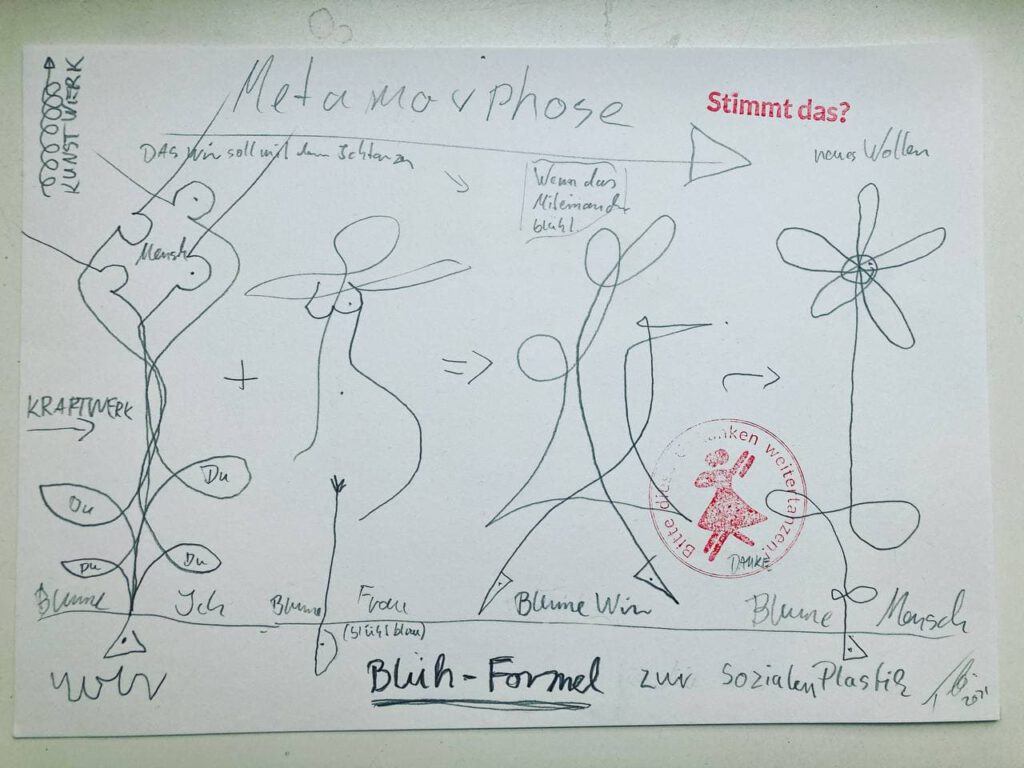 KUNSTWERK
Metamorphose
Stimmt das?
DAS Wir soll mit dem Ich tanzen
Wenn das
Miteinander
blüht
neues Wollen
Mensch
+
=>
KRAFTWERK
Du
Du
Du
Du
Bitte diese Gedanken weitertanzen!
DANKE
Blume Ich
Blume Frau
(blüht blau)
Blume Wir
Blume Mensch
Blüh-Formel zur Sozialen Plastik
2021